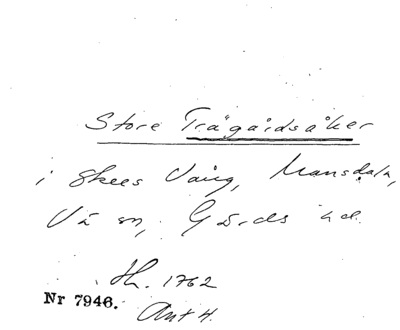 Store Trägårdsåker
i Skees Vång, Mansdala,
Vä sn, Gärds hd.
Hh. 1762
Nr 7946.
Ant 4.